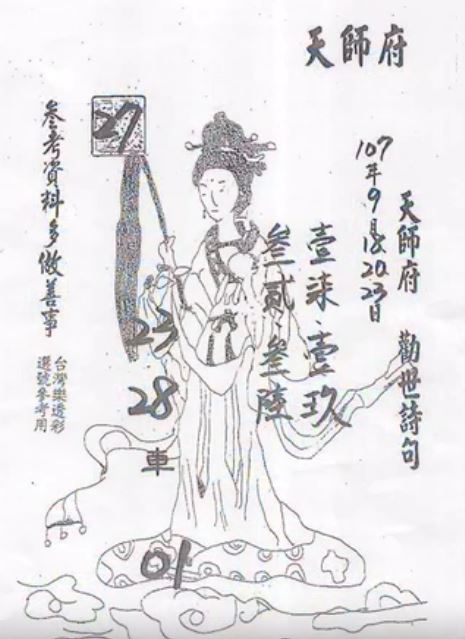 天師府
天師府 勸世詩句
107年9月18.20.23日
壹柒.壹玖
叁貳.叁陸
27
23
28
車
01
參考資料多做善事
台灣樂透彩
選號參考用